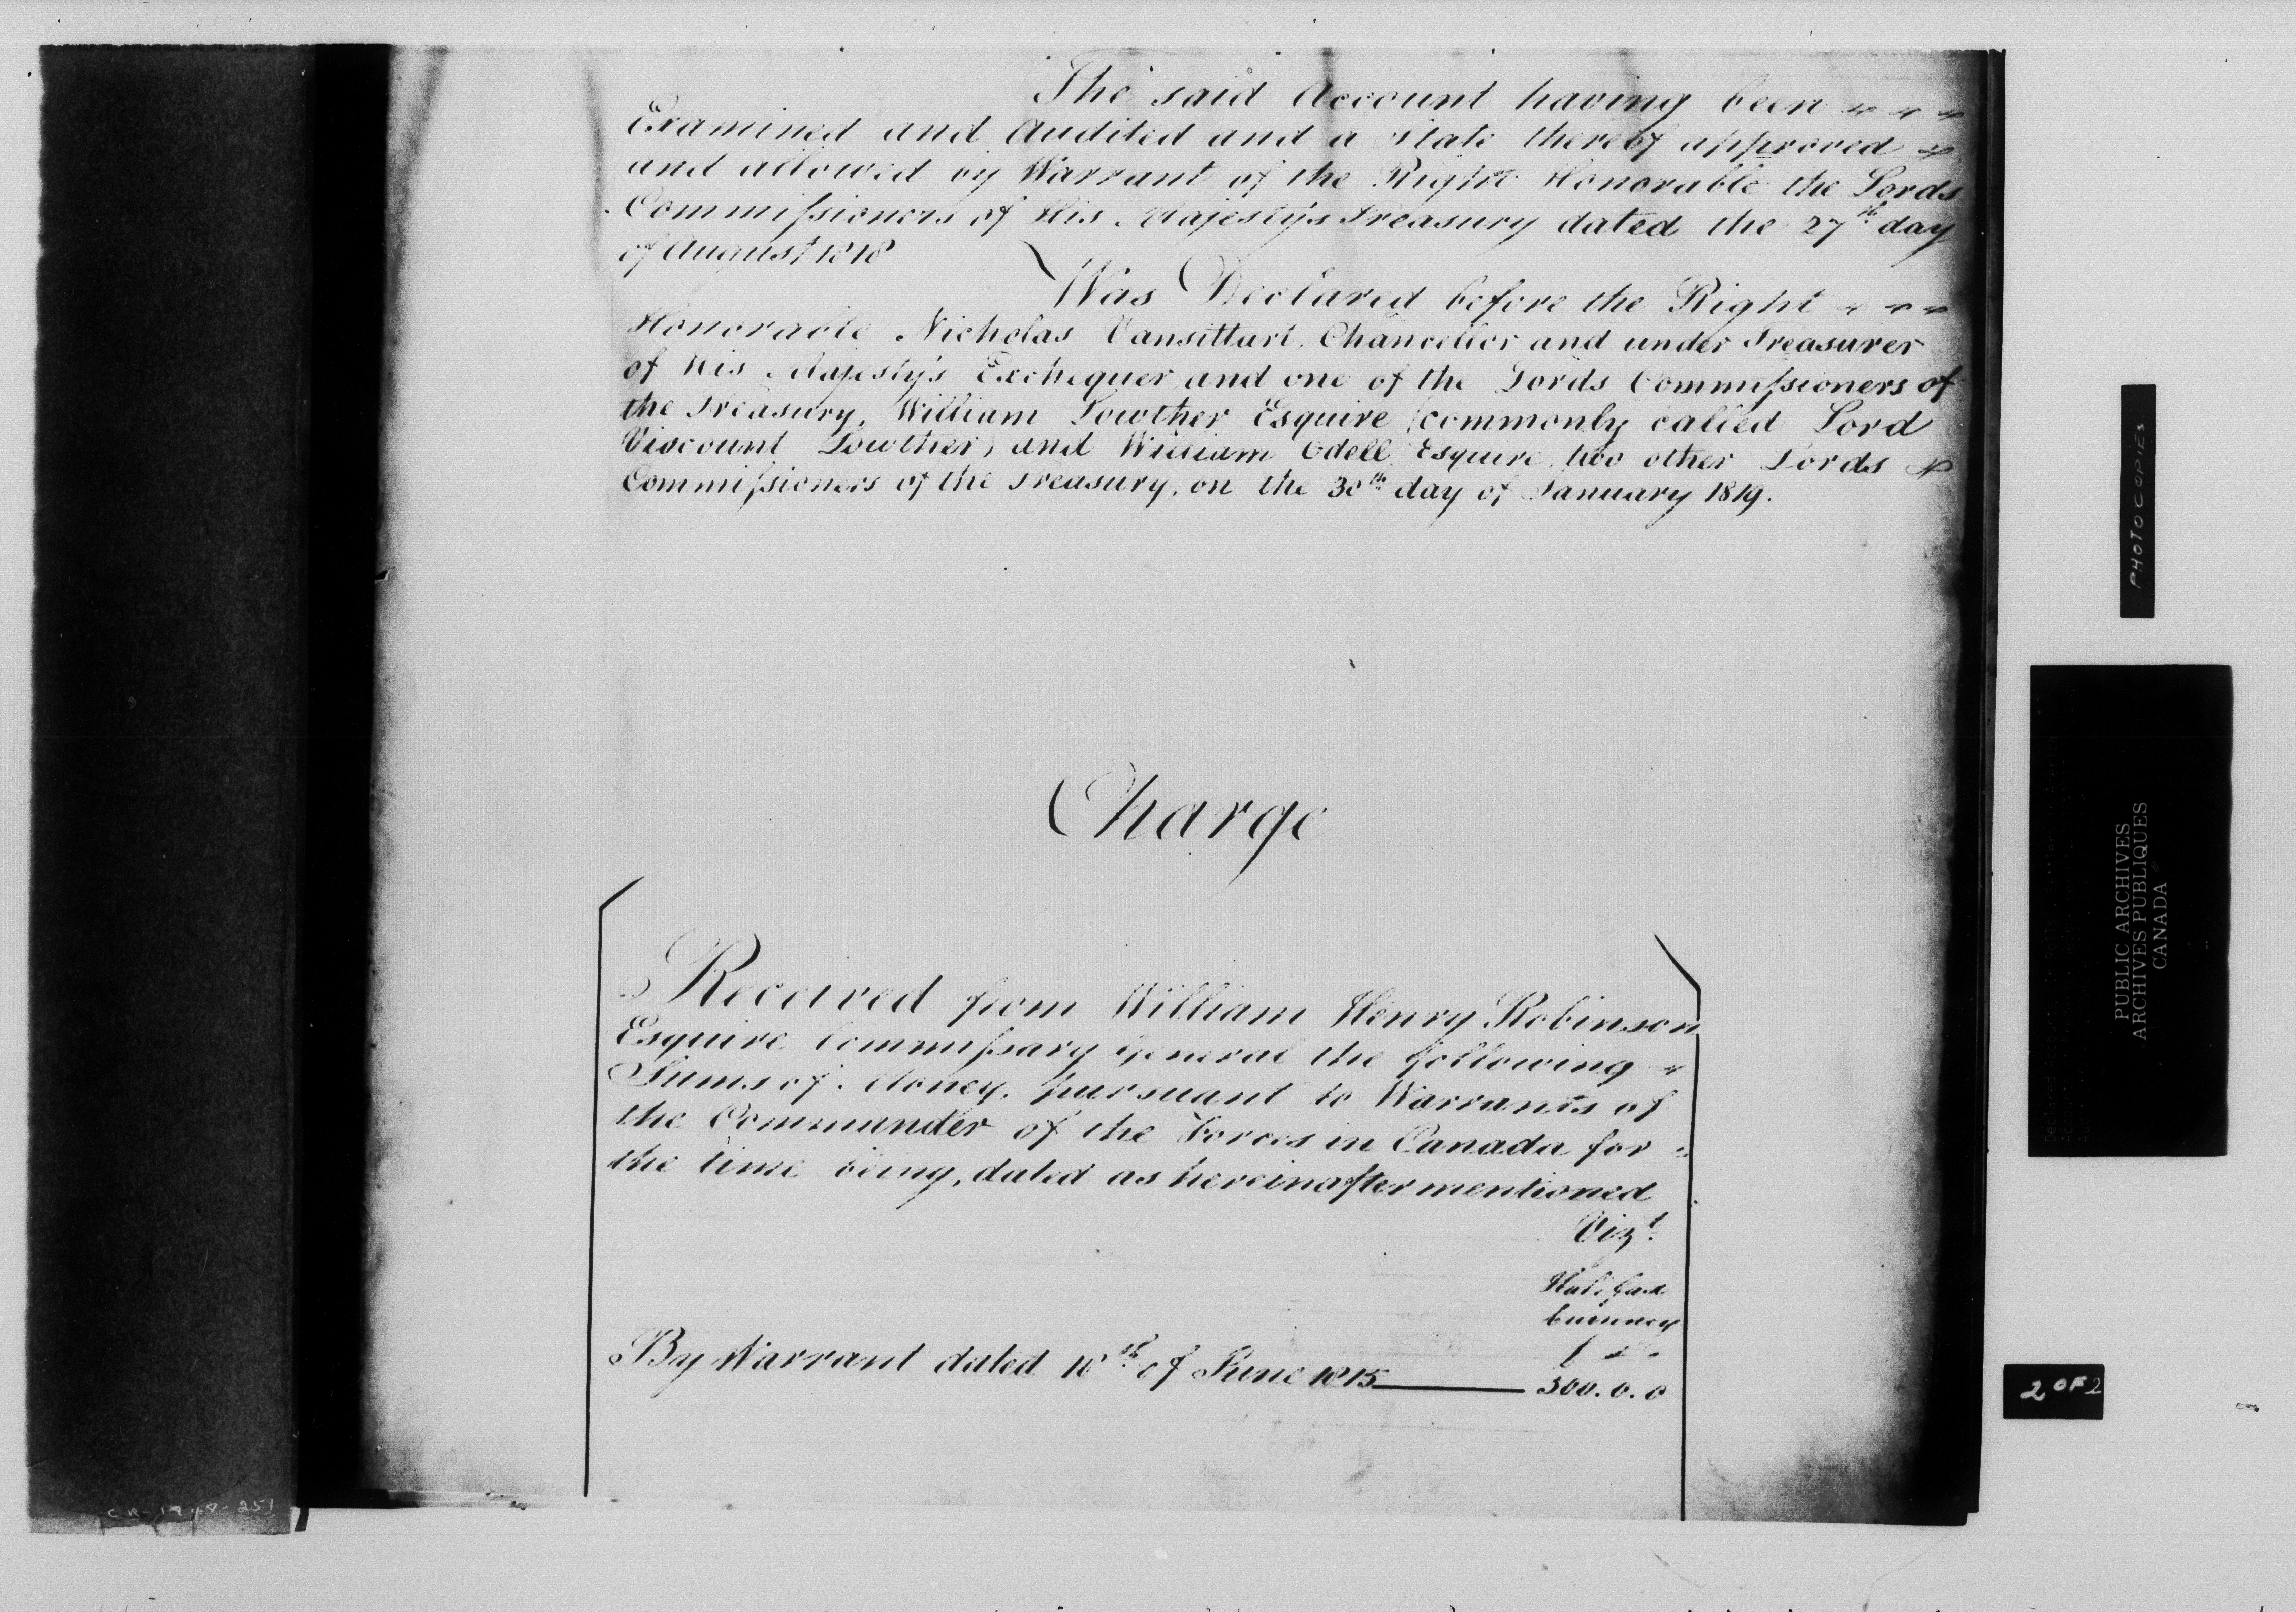 The said Account having been
Examined and Audited and a State thereof approved
and allowed by Warrant of the Right Honorable the Lords
Commissioners of His Majesty's Treasury dated the 27th day
of August 1818
Was Declared before the Right
Honorable Nicholas Vansittart, Chancellor and under Treasurer
of His Majesty's Exchequer and one of the Lords Commissioners of
the Treasury, William Lowther Esquire (commonly called Lord
Viscount Lowther) and William Odell Esquire, two other Lords
Commissioners of the Treasury, on the 30th day of January 1819.
Charge
Received from William Henry Robinson
Esquire Commissary General the following
Sums of Money, pursuant to Warrants of
the Commander of the Forces in Canada for
the time being, dated as hereinafter mentioned
Vizt.
Halifax
Currency
£
By Warrant dated of June 1815 300.0.0
PHOTOCOPIES
PUBLIC ARCHIVES
ARCHIVES PUBLIQUES
CANADA
2 OF 2